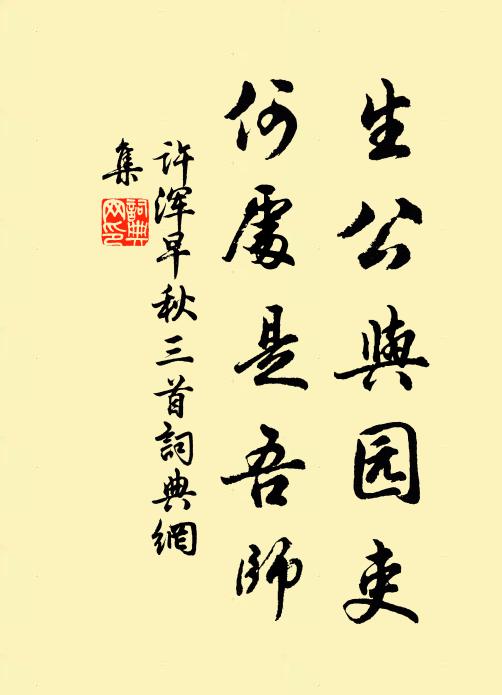 生公與园吏
何處是吾師
许浑早秋三首詞典網
集
詞典
网印